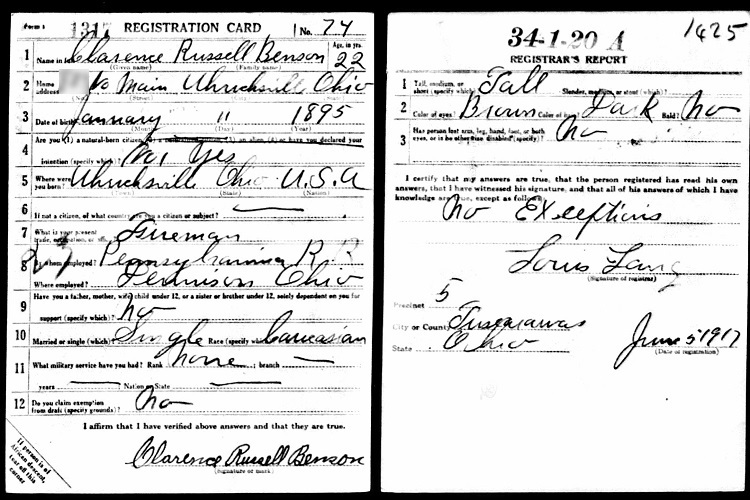 Form 1 1317 REGISTRATION CARD No. 74
1 Name in full Clarence Russell Benson Age, in yrs. 22
(Given name) (Family name)
2 Home address Main Uhrichsville Ohio
(No.) (Street) (State)
3 Date of birth January 11 1895
(Month) (Day) (Year)
4 Are you (1) a natural-born citizen, (3) an alien, (4) or have you declared your
intention (specify which)? No 1 Yes
5 Where were you born? Uhrichsville Ohio U.S.A
(Town) (State) (Nation)
6 If not a citizen, of what country are you a citizen or subject?
7 What is your present trade, occupation, or office? Fireman
8 By whom employed? Pennsylvania R.R.
Where employed? Dennison Ohio
9 Have you a father, mother, wife, child under 12, or a sister or brother under 12, solely dependent on you for
support (specify which)? No
10 Married or single (which)? Single Race (specify which)? Caucasian
11 What military service have you had? Rank None ; branch
years Nation or State
12 Do you claim exemption from draft (specify grounds)? No
I affirm that I have verified above answers and that they are true.
Clarence Russell Benson
(Signature or mark)
If person is of
African descent,
tear off this
corner
1425
34-1-20 A
REGISTRAR'S REPORT
1 Tall, medium, or short (specify which)? Tall Slender, medium, or stout (which)?
2 Color of eyes? Brown Color of hair? Dark Bald? No
3 Has person lost arm, leg, hand, foot, or both eyes, or is he otherwise disabled (specify)? No
I certify that my answers are true, that the person registered has read his own
answers, that I have witnessed his signature, and that all of his answers of which I have
knowledge are true, except as follows:
No Exceptions
Louis Lang
(Signature of registrar)
Precinct 5
City or County Tuscarawas
State Ohio June 5 1917
(Date of registration)